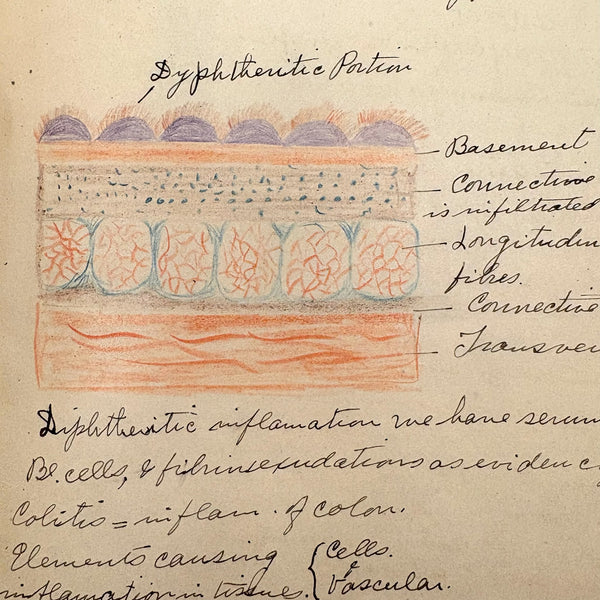 Dyphtheritic Portion
Basement
Connective
is infiltrated
Longitudin
fibres.
Connective
Transver
Diphtheritic inflamation we have serum
Bl. cells, & fibrinsexudations as evidenc
Colitis = inflam. of colon.
Elements causing { Cells.
inflamation in tissue. { & Vascular.